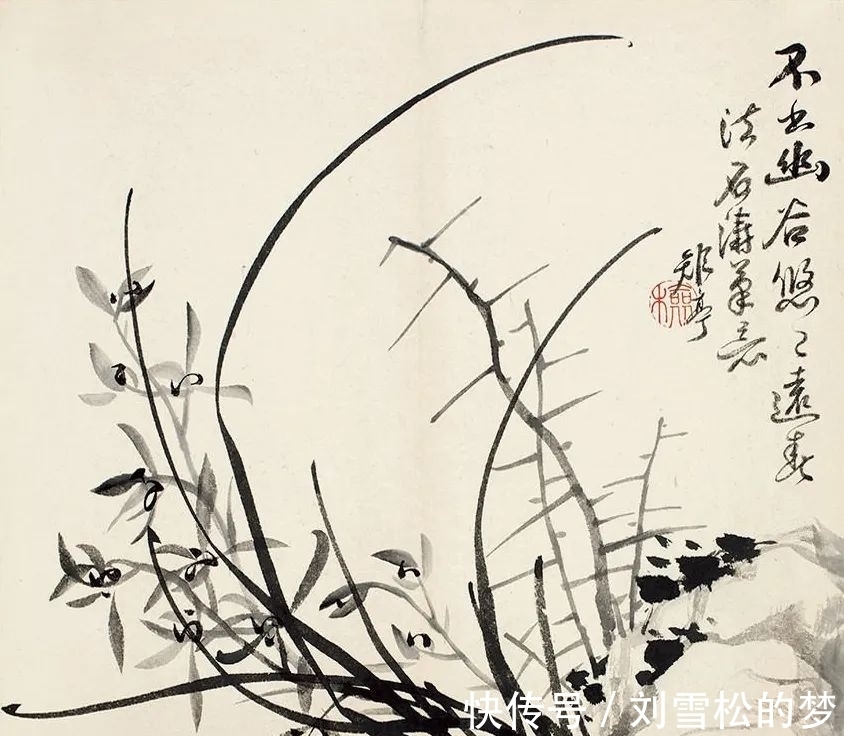 不出幽谷悠〻遠
法石濤筆意
亭
快传号/刘雪松的梦